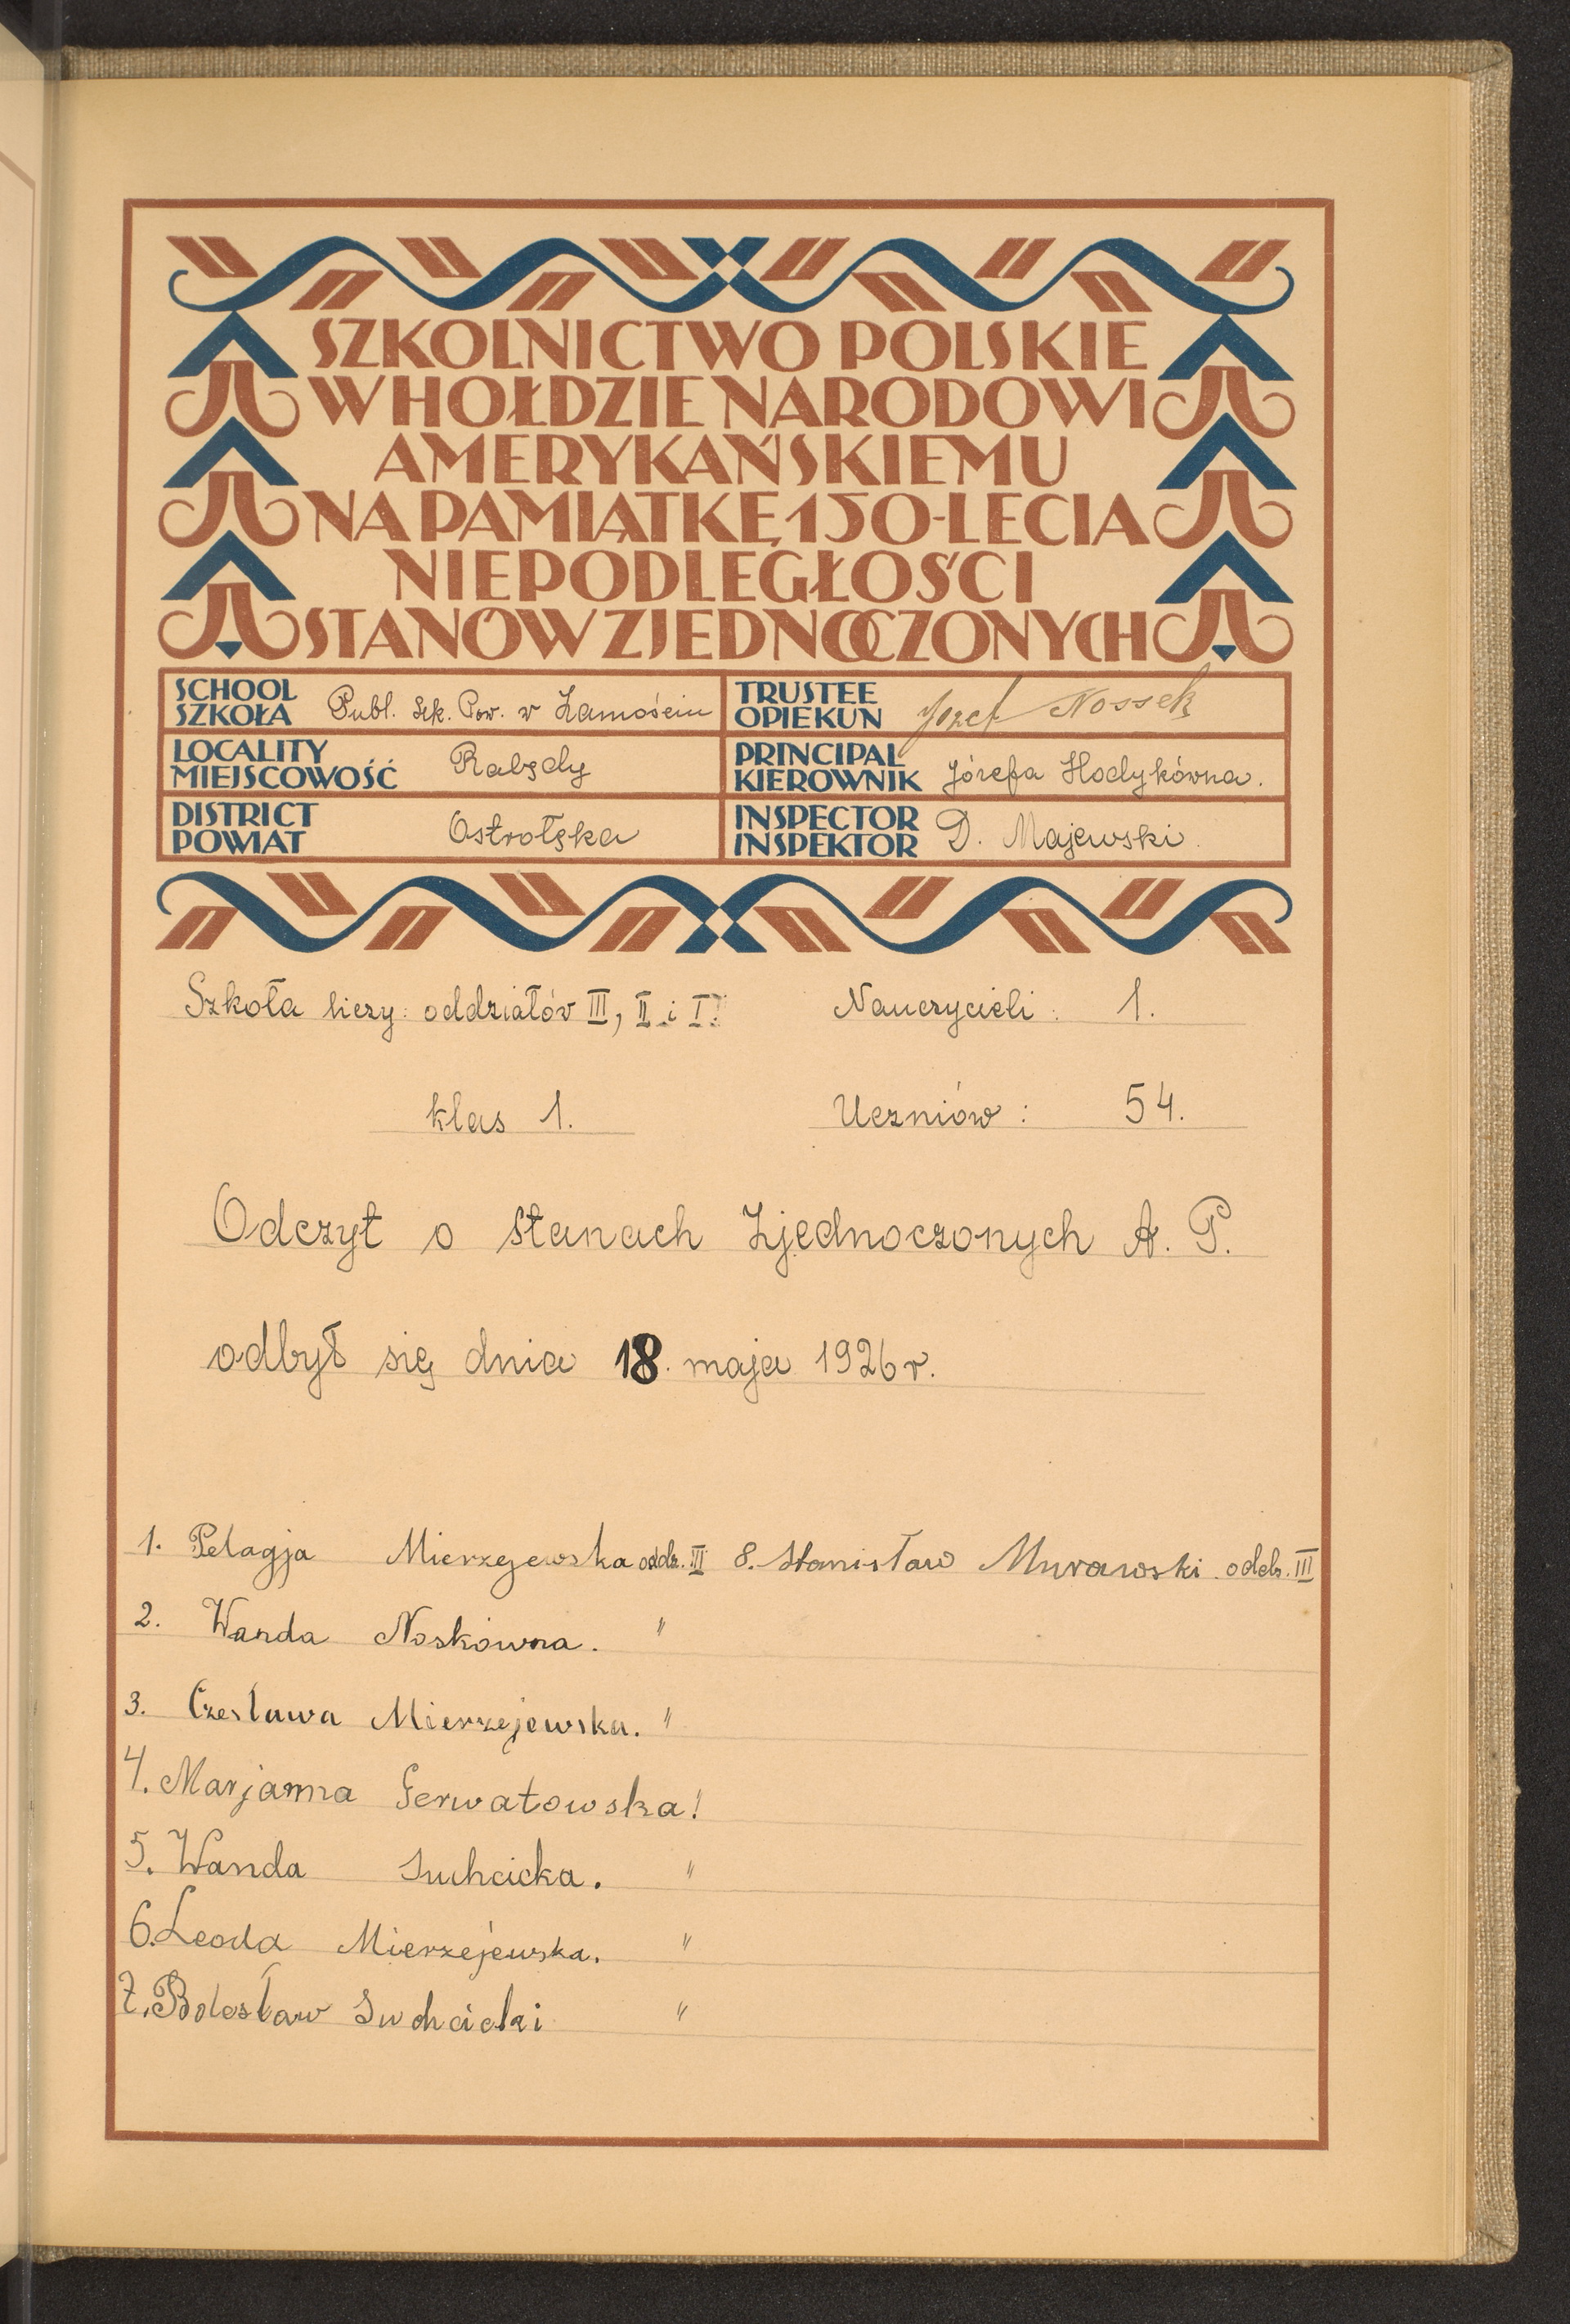 SZKOLNICTWO POLSKIE
W HOŁDZIE NARODOWI
AMERYKAŃSKIEMU
NA PAMIĄTKĘ 150-LECIA
NIEPODLEGŁOŚCI
STANÓW ZJEDNOCZONYCH
SCHOOL
SZKOŁA Publ. Szk. Pow. w Zamościu
TRUSTEE
OPIEKUN Józef Nossek
LOCALITY
MIEJSCOWOŚĆ Rabędy
PRINCIPAL
KIEROWNIK Józefa Hodykówna.
DISTRICT
POWIAT Ostrołęka
INSPECTOR
INSPEKTOR D. Majewski.
Szkoła liczy: oddziałów III, II i I. Nauczycieli: 1.
klas 1. Uczniów: 54.
Odczyt o Stanach Zjednoczonych A. P.
odbył się dnia 18. maja 1926 r.
1. Pelagja Mierzejewska oddz. III 8. Stanisław Murawski oddz. III
2. Wanda Noskówna. "
3. Czesława Mierzejewska. "
4. Marjanna Gerwatowska "
5. Wanda Suchcicka. "
6. Leoda Mierzejewska. "
7. Bolesław Suchcicki "